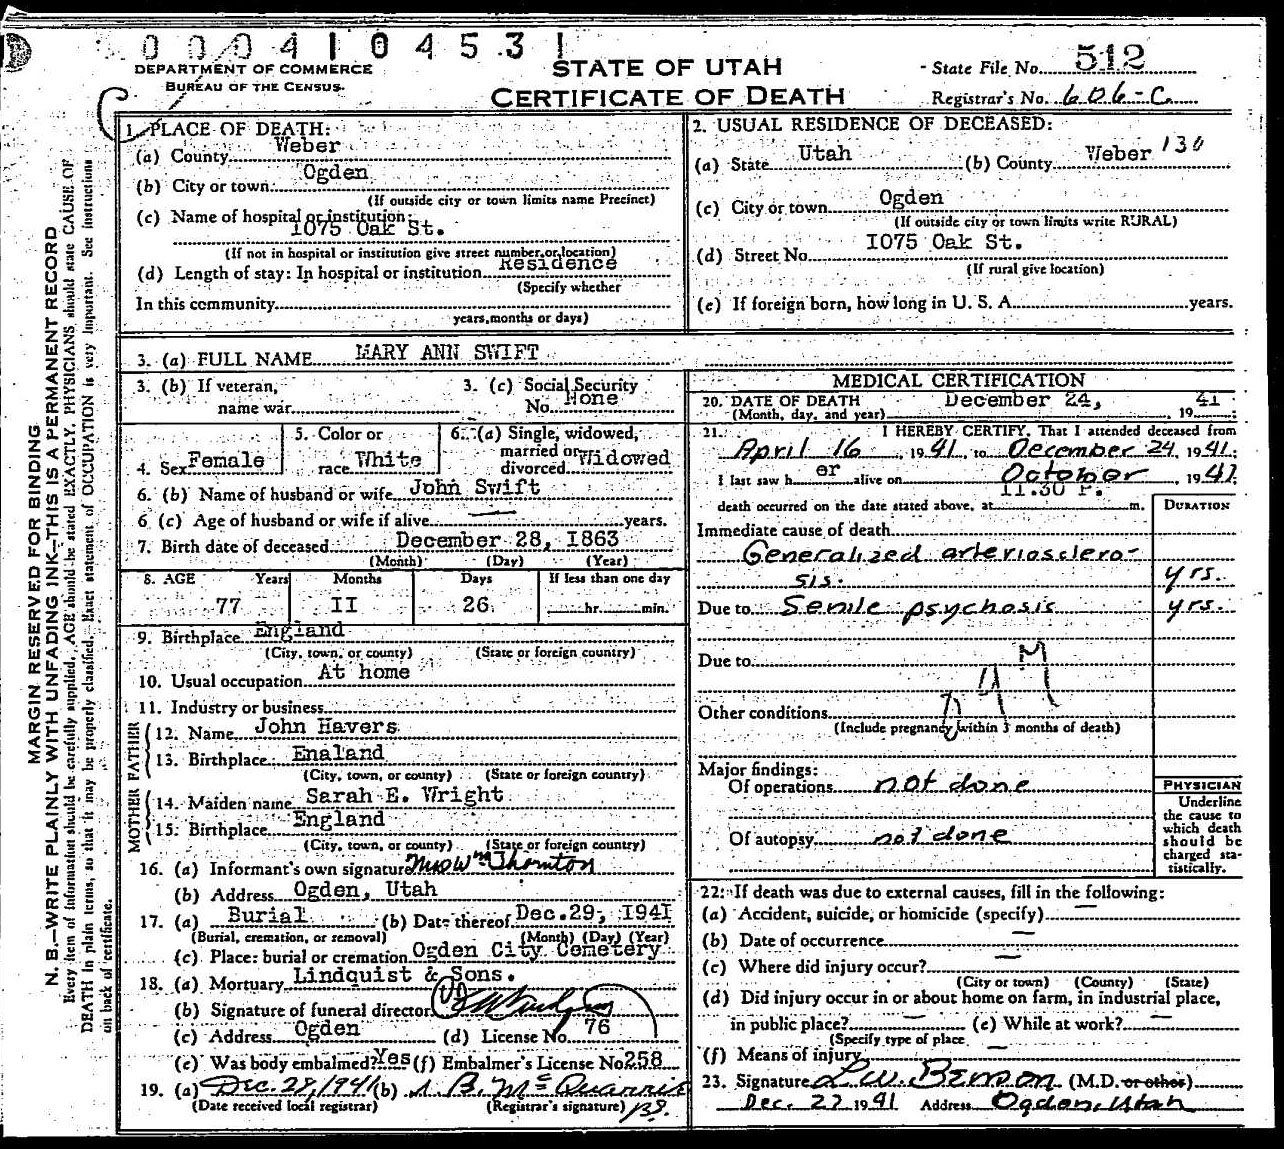 0 0 0 4 1 0 4 5 3 1
DEPARTMENT OF COMMERCE
BUREAU OF THE CENSUS
STATE OF UTAH
CERTIFICATE OF DEATH
State File No. 512
Registrar's No. 606-C
1. PLACE OF DEATH:
(a) County Weber
(b) City or town: Ogden
(If outside city or town limits name Precinct)
(c) Name of hospital or institution:
1075 Oak St.
(If not in hospital or institution give street number or location)
(d) Length of stay: In hospital or institution Residence
(Specify whether
In this community
years, months or days)
2. USUAL RESIDENCE OF DECEASED:
(a) State Utah (b) County Weber 130
(c) City or town Ogden
(If outside city or town limits write RURAL)
(d) Street No. 1075 Oak St.
(If rural give location)
(e) If foreign born, how long in U. S. A. years.
3. (a) FULL NAME MARY ANN SWIFT
3. (b) If veteran,
name war
3. (c) Social Security
No. None
4. Sex Female
5. Color or
race White
6. (a) Single, widowed,
married or
divorced Widowed
6. (b) Name of husband or wife John Swift
6 (c) Age of husband or wife if alive — years.
7. Birth date of deceased December 28, 1863
(Month) (Day) (Year)
8. AGE Years Months Days If less than one day
77 II 26 hr. min.
9. Birthplace England
(City, town, or county) (State or foreign country)
10. Usual occupation At home
11. Industry or business
FATHER
12. Name John Havers
13. Birthplace Enaland
(City, town, or county) (State or foreign country)
MOTHER
14. Maiden name Sarah E. Wright
15. Birthplace England
(City, town, or county) (State or foreign country)
16. (a) Informant's own signature Mrs Wm Thornton
(b) Address Ogden, Utah
17. (a) Burial (b) Date thereof Dec. 29, 1941
(Burial, cremation, or removal) (Month) (Day) (Year)
(c) Place: burial or cremation Ogden City Cemetery
18. (a) Mortuary Lindquist & Sons.
(b) Signature of funeral director
(c) Address Ogden (d) License No. 76
(e) Was body embalmed? Yes (f) Embalmer's License No 258
19. (a) Dec. 28, 1941 (b) B. McQuarrie
(Date received local registrar) (Registrar's signature)
MEDICAL CERTIFICATION
20. DATE OF DEATH December 24, 1941
(Month, day, and year)
21. I HEREBY CERTIFY, That I attended deceased from
April 16, 1941, to December 24, 1941;
I last saw her alive on October, 1941;
death occurred on the date stated above, at 11.30 P. m.
DURATION
Immediate cause of death
Generalized arteriosclero-
sis. yrs.
Due to Senile psychosis yrs.
Due to
Other conditions
(Include pregnancy within 3 months of death)
Major findings:
Of operations not done
Of autopsy not done
PHYSICIAN
Underline
the cause to
which death
should be
charged sta-
tistically.
22: If death was due to external causes, fill in the following:
(a) Accident, suicide, or homicide (specify) —
(b) Date of occurrence —
(c) Where did injury occur? —
(City or town) (County) (State)
(d) Did injury occur in or about home on farm, in industrial place,
in public place? — (e) While at work? —
(Specify type of place
(f) Means of injury —
23. Signature L.W. Benson (M.D. or other)
Dec. 27 1941 Address Ogden, Utah
MARGIN RESERVED FOR BINDING
N. B.—WRITE PLAINLY WITH UNFADING INK—THIS IS A PERMANENT RECORD
Every item of information should be carefully supplied. AGE should be stated EXACTLY. PHYSICIANS should state CAUSE OF
DEATH in plain terms, so that it may be properly classified. Exact statement of OCCUPATION is very important. See instructions
on back of certificate.